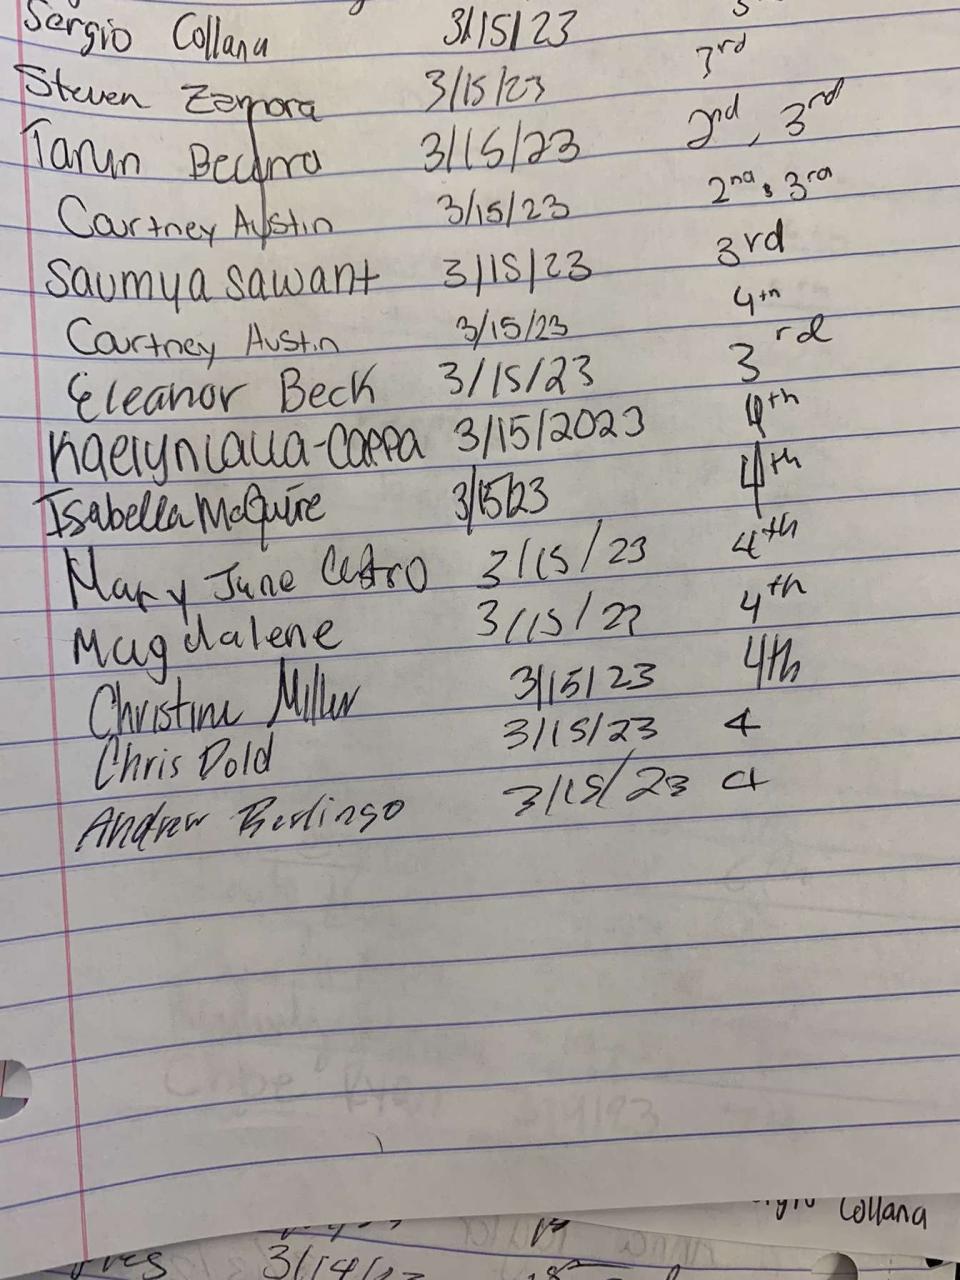 Sergio Collana 3/15/23
Steven Zamora 3/15/23 3rd
Tarun 3/15/23 2nd, 3rd
Courtney Austin 3/15/23 2nd & 3rd
Saumya Sawant 3/15/23 3rd
Courtney Austin 3/15/23 4th
Eleanor Beck 3/15/23 3rd
Kaelyn Calla-Cappa 3/15/2023 4th
Isabella McGuire 3/15/23 4th
Mary June Castro 3/15/23 4th
Magdalene 3/15/23 4th
Christine Miller 3/15/23 4th
Chris Dold 3/15/23 4
Andrew Berlingo 3/15/23 4
Collana
3/14/23